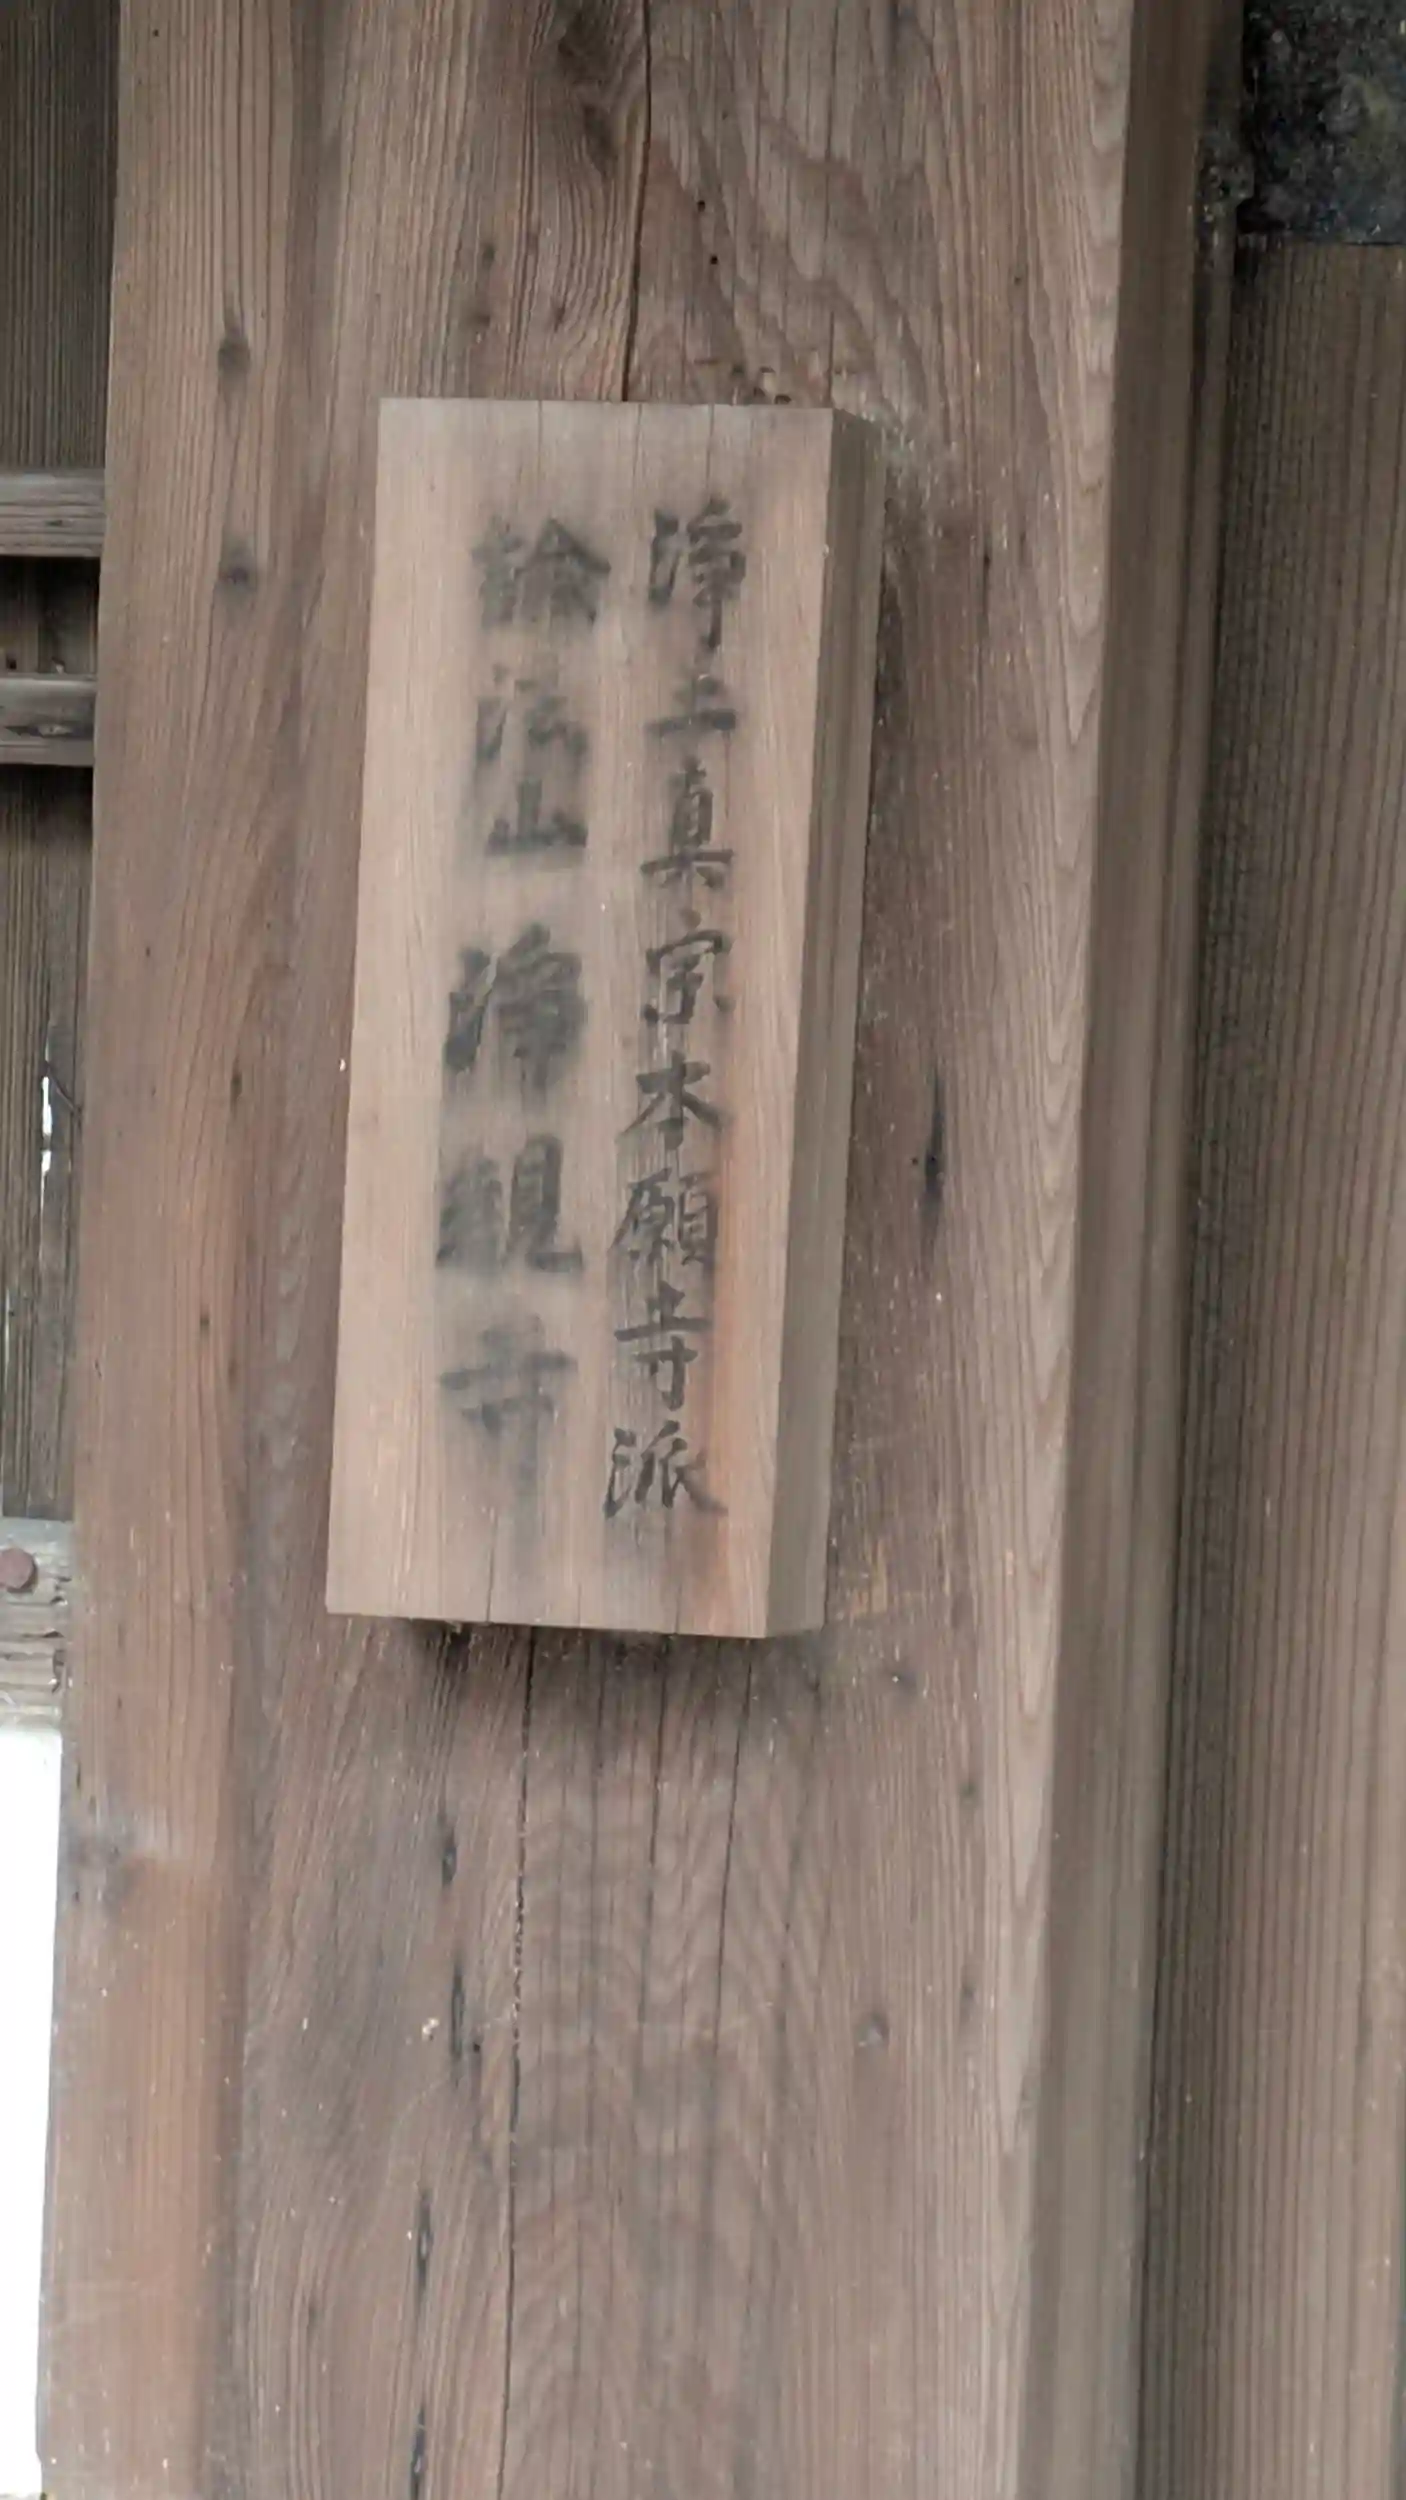 浄土真宗本願寺派
法山 浄観寺